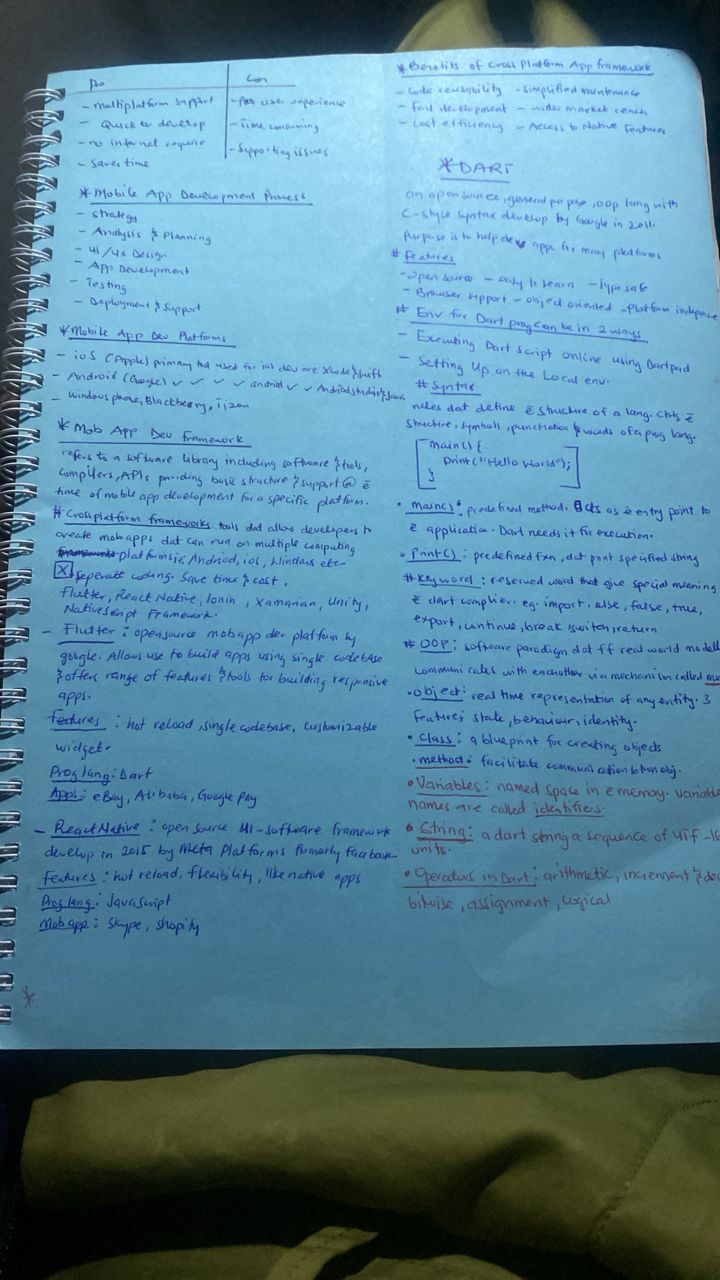 Pro Con
- multiplatform support - Poor user experience
- Quick to develop - Time consuming
- no internet require - Supporting issues
- Saves time
* Mobile App Development Process
- Strategy
- Analysis & Planning
- UI/UX Design
- App Development
- Testing
- Deployment & Support
* Mobile App Dev Platforms
- ioS (Apple) primary tool used for ios dev are Xcode & swift
- Android (Google) ✓ ✓ ✓ ✓ android ✓ ✓ Android studio & Java
- Windows phone, Blackberry, Tizen
* Mob App Dev framework
refers to a software library including software & tools,
compilers, APIs providing base structure & support @ ē
time of mobile app development for a specific platform.
# Crossplatform frameworks tools dat allow developers to
create mob apps dat can run on multiple computing
platforms ie, Android, ios, Windows etc
X seperate coding. Save time & cost.
Flutter, React Native, Ionin, Xamarian, Unity,
Nativescript Framework.
- Flutter: opensource mobapp dev platform by
google. Allows use to build apps using single codebase
& offers range of features & tools for building responsive
apps.
features: hot reload, single codebase, customizable
widget.
Prog lang: Dart
Apps: eBay, Alibaba, Google Pay
- React Native: open source UI-software framework
develop in 2015 by Meta Platforms formerly facebook
features: hot reload, flexibility, like native apps
Prog lang: Javascript
Mob app: Skype, Shopify
*
* Benefits of Cross Platform App framework
- Code reusability - Simplified maintenance
- fast development - wider market reach
- Cost efficiency - Access to Native Features
* DART
an open source, general purpose, oop lang with
C-style syntax develop by Google in 2011.
Purpose is to help devs apps for many platforms
# Features
- Open source - easy to learn - Type safe
- Browser support - object oriented - Platform indepence
# Env for Dart prog can be in 2 ways
- Executing Dart script online using Dartpad
- Setting Up on the Local env.
# Syntax
rules dat define ē structure of a lang. Chts ē
structure, symbols, punctuation & words of a prog lang.
main() {
print("Hello World");
}
• main(): predefined method. acts as ē entry point to
ē application. Dart needs it for execution.
• Print(): predefined fxn, dat print specified string
# Keyword: reserved word that give special meaning
ē dart complier. eg. import, else, false, true,
export, continue, break, switch, return
# OOP: software paradigm dat ff real world modell
communicates with eachother via mechanism called
• object: real time representation of any entity. 3
features: state, behaviour, identity.
• Class: a blueprint for creating objects
• method: facilitate communication btwn obj.
• Variables: named space in ē memory. variable
names are called identifiers.
• String: a dart string a sequence of utf-16
units.
• Operators in Dart: arithmetic, increment & dec
bitwise, assignment, logical